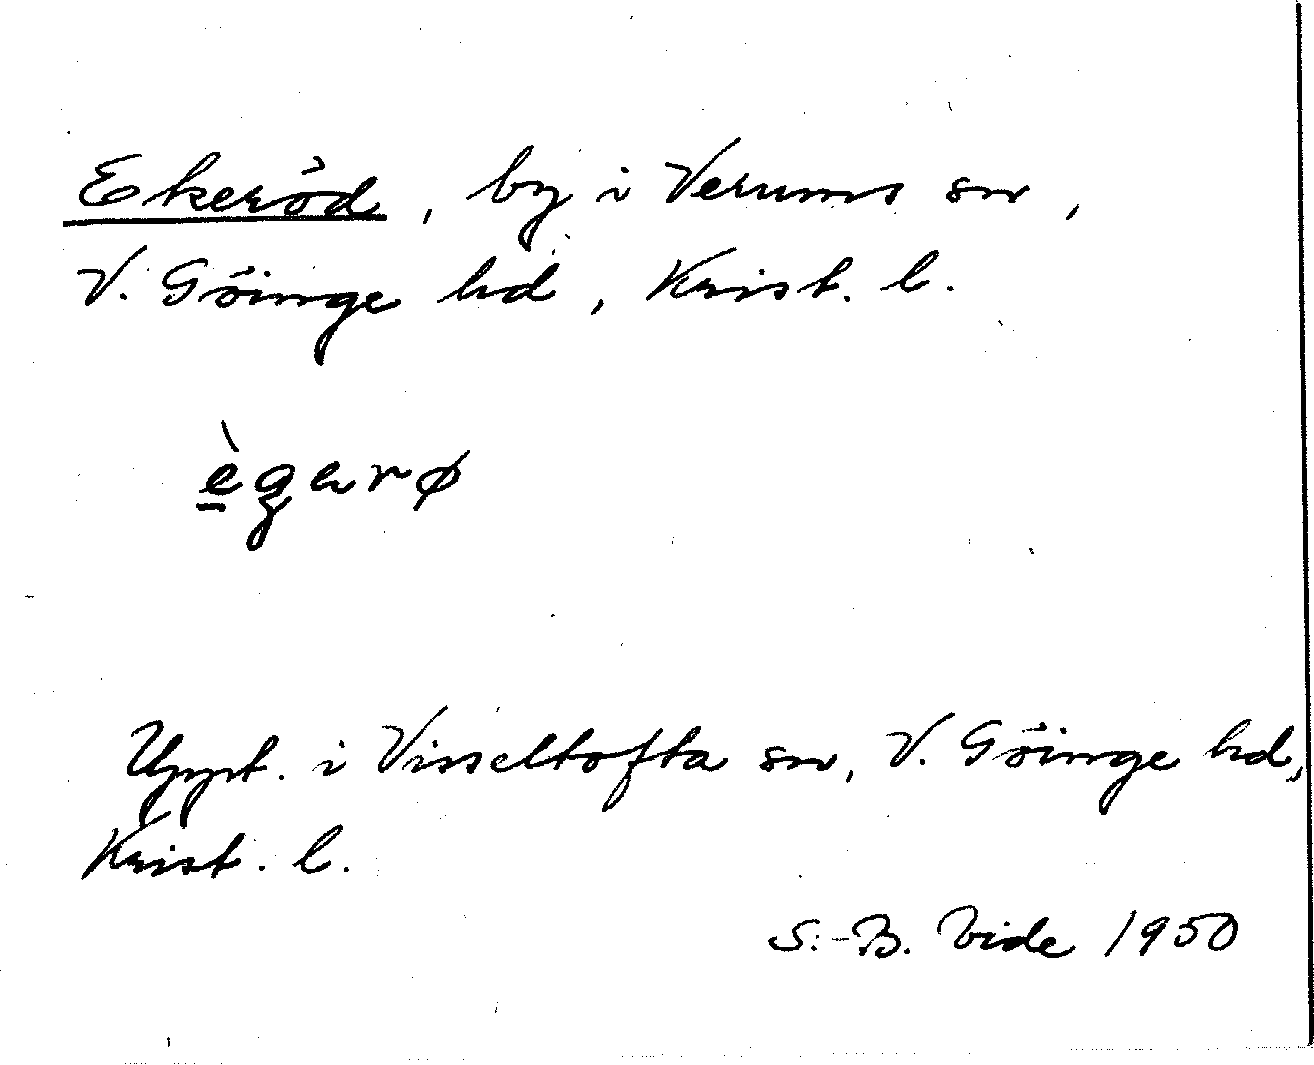 Ekeröd, by i Verums sn,
V. Göinge hd, Krist. l.
è̱garø
Uppt. i Visseltofta sn, V. Göinge hd,
Krist. l.
S.-B. Vide 1950